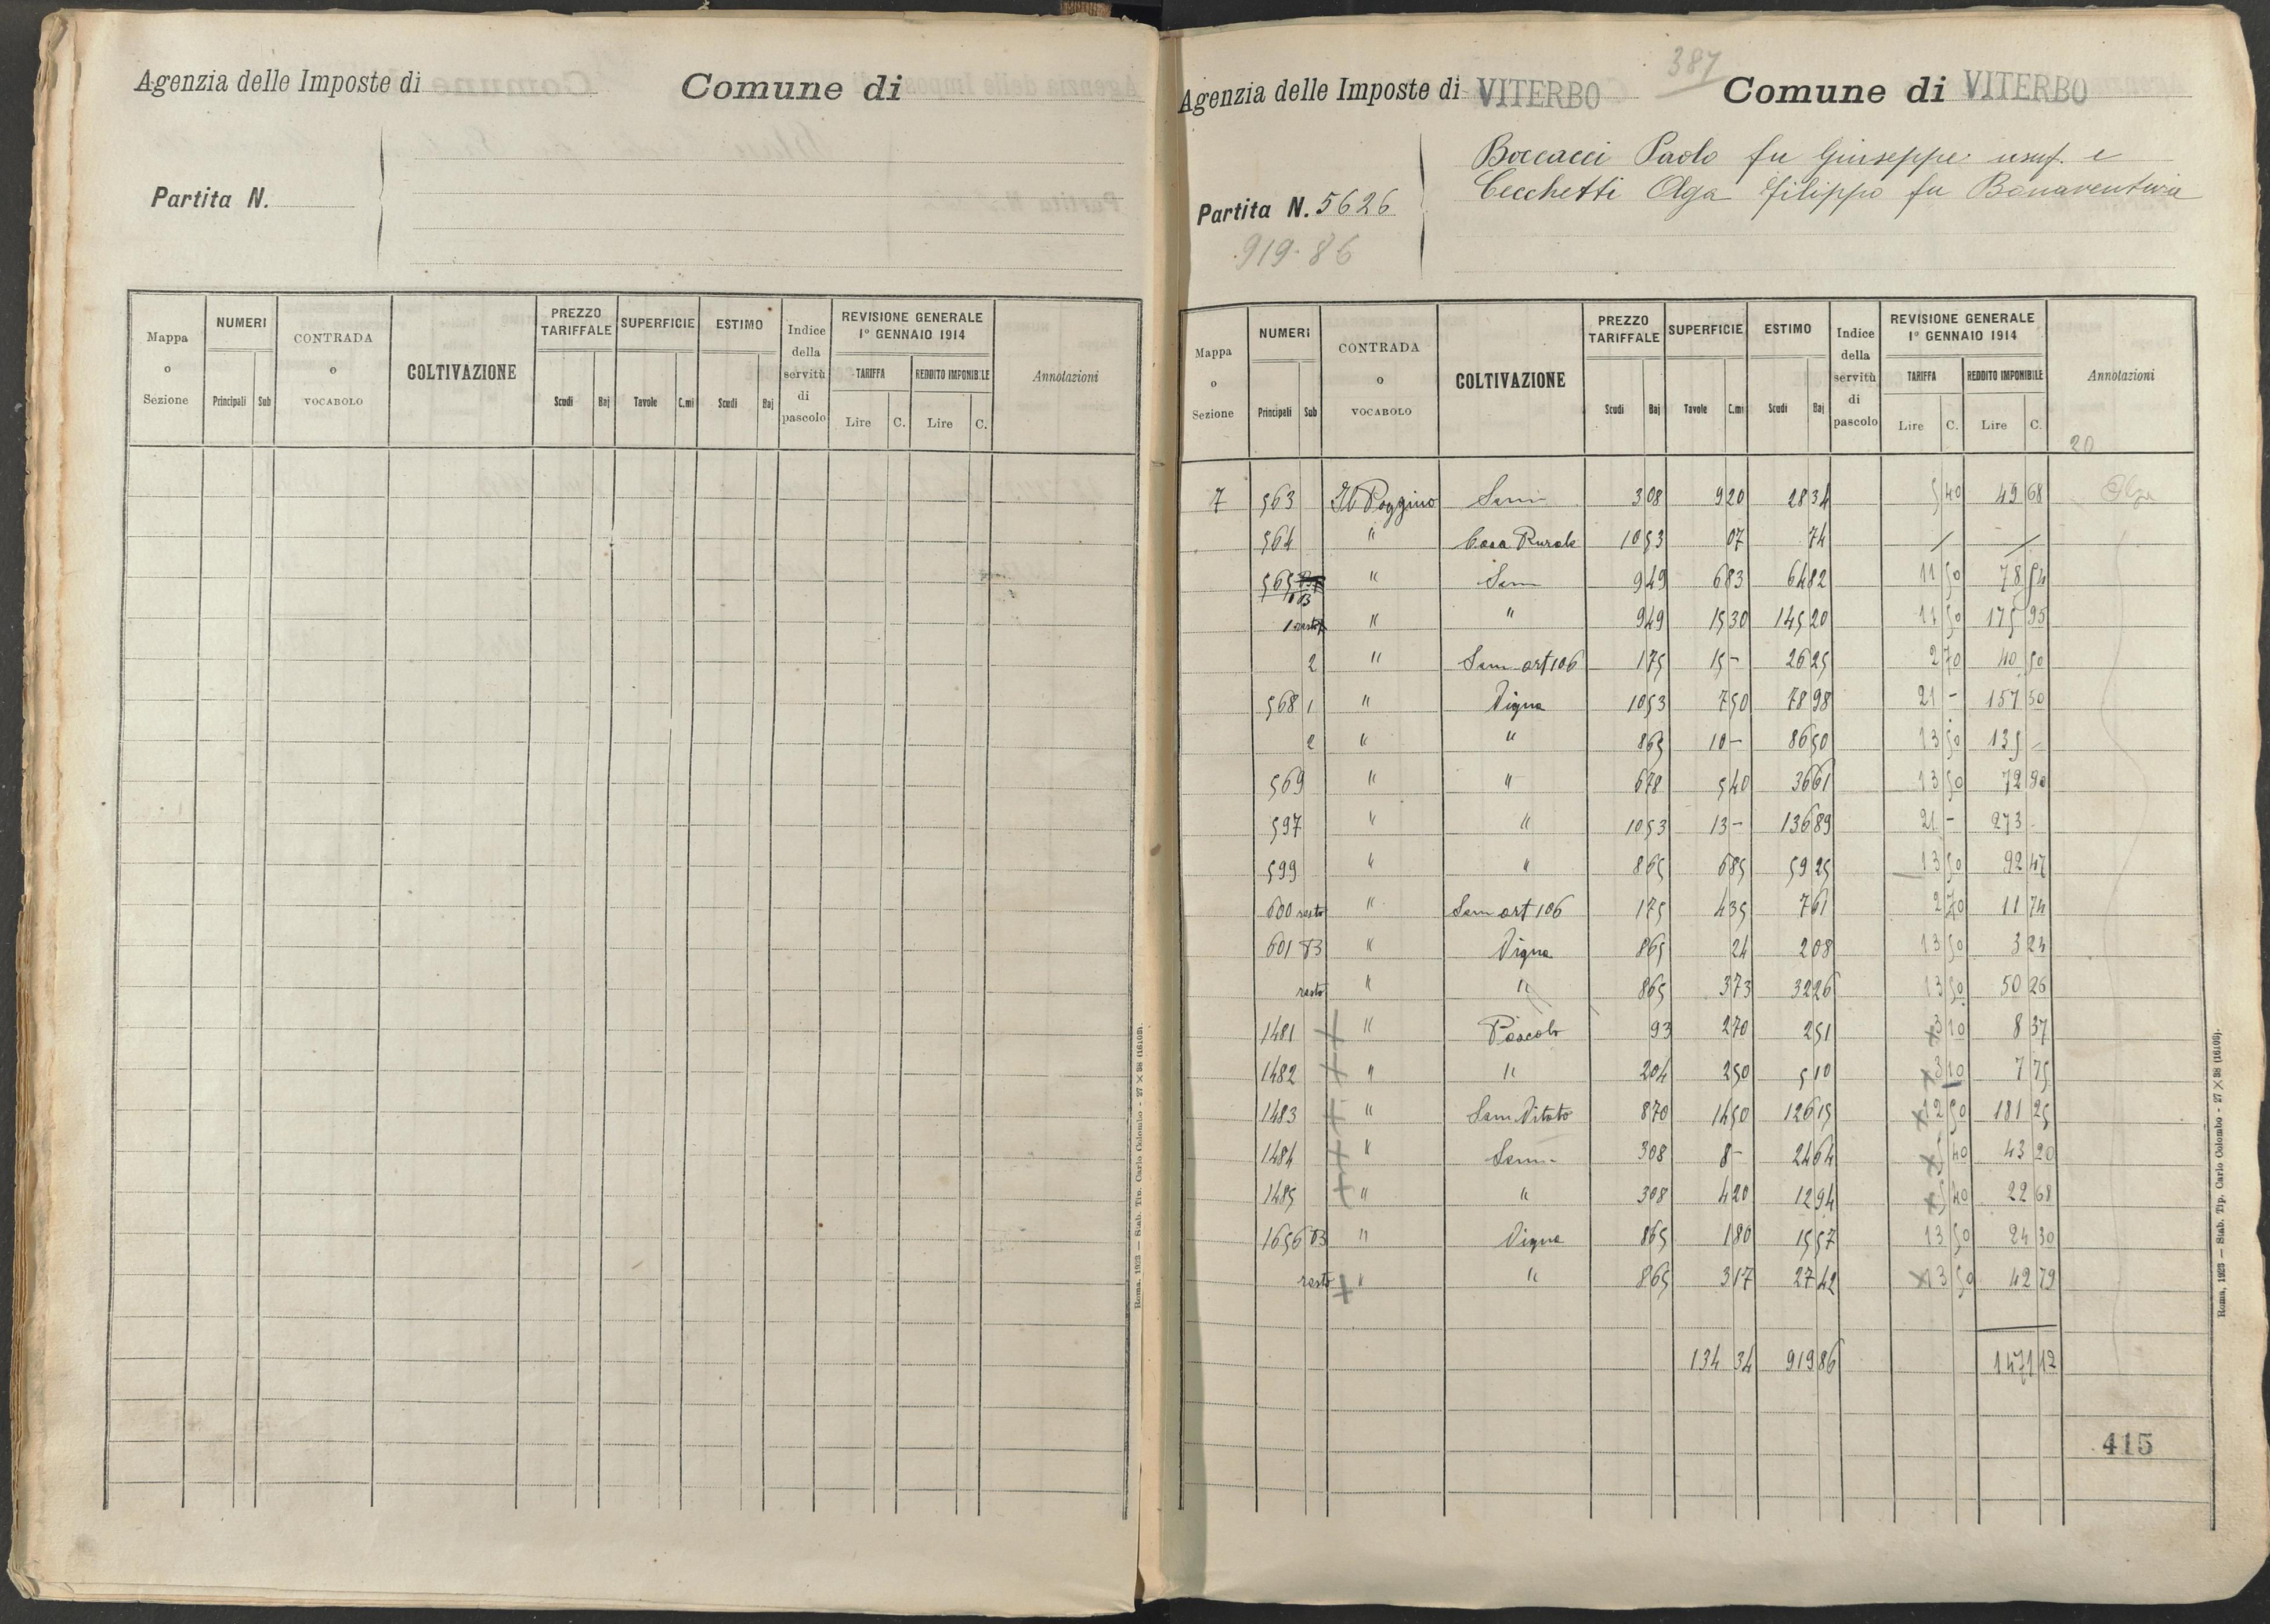 Agenzia delle Imposte di
Comune di
Partita N.
Mappa o Sezione | NUMERI Principali Sub | CONTRADA o VOCABOLO | COLTIVAZIONE | PREZZO TARIFFALE Scudi Baj | SUPERFICIE Tavole C.mi | ESTIMO Scudi Baj | Indice della servitù di pascolo | REVISIONE GENERALE 1° GENNAIO 1914 TARIFFA Lire C. REDDITO IMPONIBILE Lire C. | Annotazioni
Roma, 1923 — Stab. Tip. Carlo Colombo - 27 X 38 (16103).
387
Agenzia delle Imposte di VITERBO
Comune di VITERBO
Boccacci Paolo fu Giuseppe usuf. e
Cecchetti Olga Filippo fu Bonaventura
Partita N. 5626
919.86
Mappa o Sezione | NUMERI Principali Sub | CONTRADA o VOCABOLO | COLTIVAZIONE | PREZZO TARIFFALE Scudi Baj | SUPERFICIE Tavole C.mi | ESTIMO Scudi Baj | Indice della servitù di pascolo | REVISIONE GENERALE 1° GENNAIO 1914 TARIFFA Lire C. REDDITO IMPONIBILE Lire C. | Annotazioni
20
7 563 Il Poggino Sem 3 08 9 20 28 34 5 40 49 68 Olga
564 " Casa Rurale 10 53 07 74 / /
565 1 B " Sem 9 49 6 83 64 82 11 50 78 54
1 resto " " 9 49 15 30 145 20 11 50 175 95
2 " Sem art 106 1 75 15 - 26 25 2 70 40 50
568 1 " Vigna 10 53 7 50 78 98 21 - 157 50
2 " " 8 65 10 - 86 50 13 50 135 -
569 " " 6 78 5 40 36 61 13 50 72 90
597 " " 10 53 13 - 136 89 21 - 273 -
599 " " 8 65 6 85 59 25 13 50 92 47
600 resto " Sem art 106 1 75 4 35 7 61 2 70 11 74
601 B " Vigna 8 65 24 2 08 13 50 3 24
resto " " 8 65 3 73 32 26 13 50 50 26
1481 + " Pascolo 93 2 70 2 51 x 3 10 8 37
1482 + " " 2 04 2 50 5 10 x 3 10 7 75
1483 + " Sem Vitato 8 70 14 50 126 15 x 12 50 181 25
1484 + " Sem 3 08 8 - 24 64 x 5 40 43 20
1485 + " " 3 08 4 20 12 94 x 5 40 22 68
1656 B " Vigna 8 65 1 80 15 57 13 50 24 30
resto + " " 8 65 3 17 27 42 x 13 50 42 79
134 34 919 86 1471 12
415
Roma, 1923 — Stab. Tip. Carlo Colombo - 27 X 38 (16103).